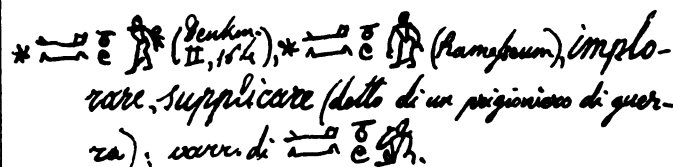 * (Denkm. II, 164), * (Ramesseum), implo-
rare, supplicare (detto di un prigioniero di guer-
ra); varr. di .